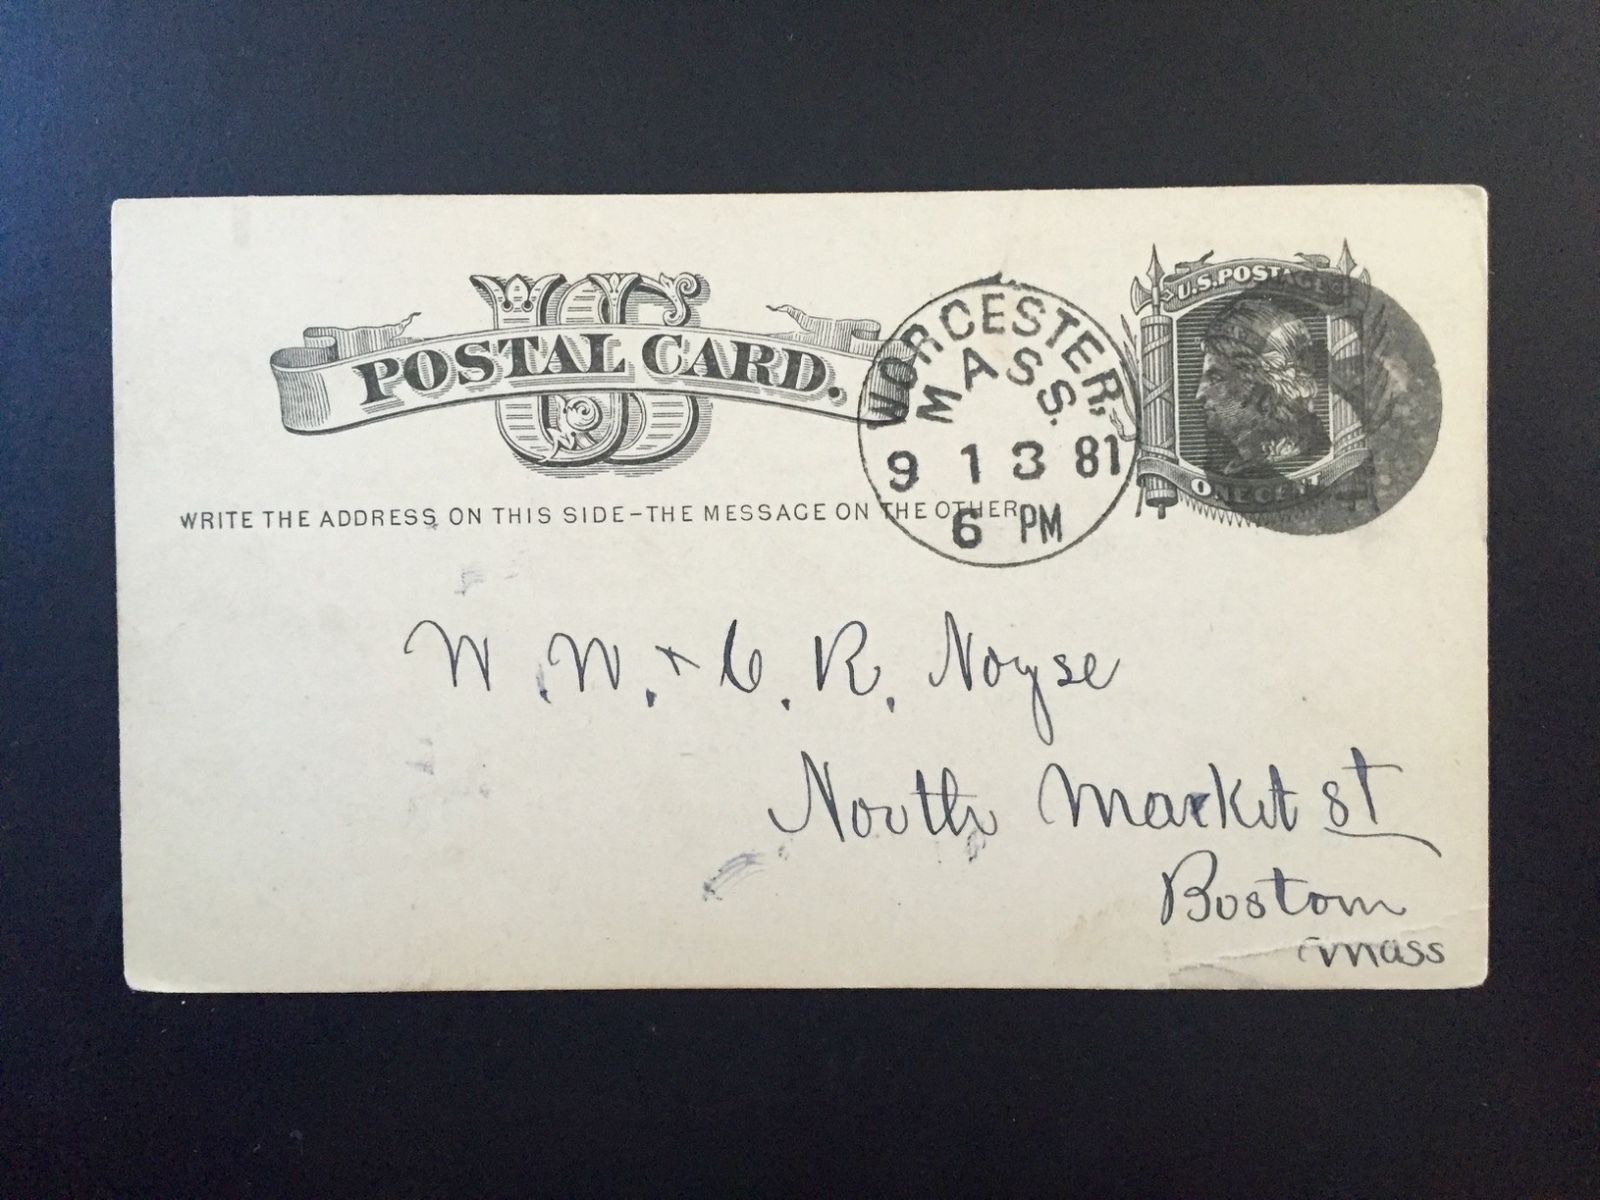 US
POSTAL CARD.
WRITE THE ADDRESS ON THIS SIDE–THE MESSAGE ON THE OTHER
WORCESTER,
MASS.
9 13 81
6 PM
U.S. POSTAGE
ONE CENT
W. W. + C. R. Noyse
North Market St
Boston
Mass